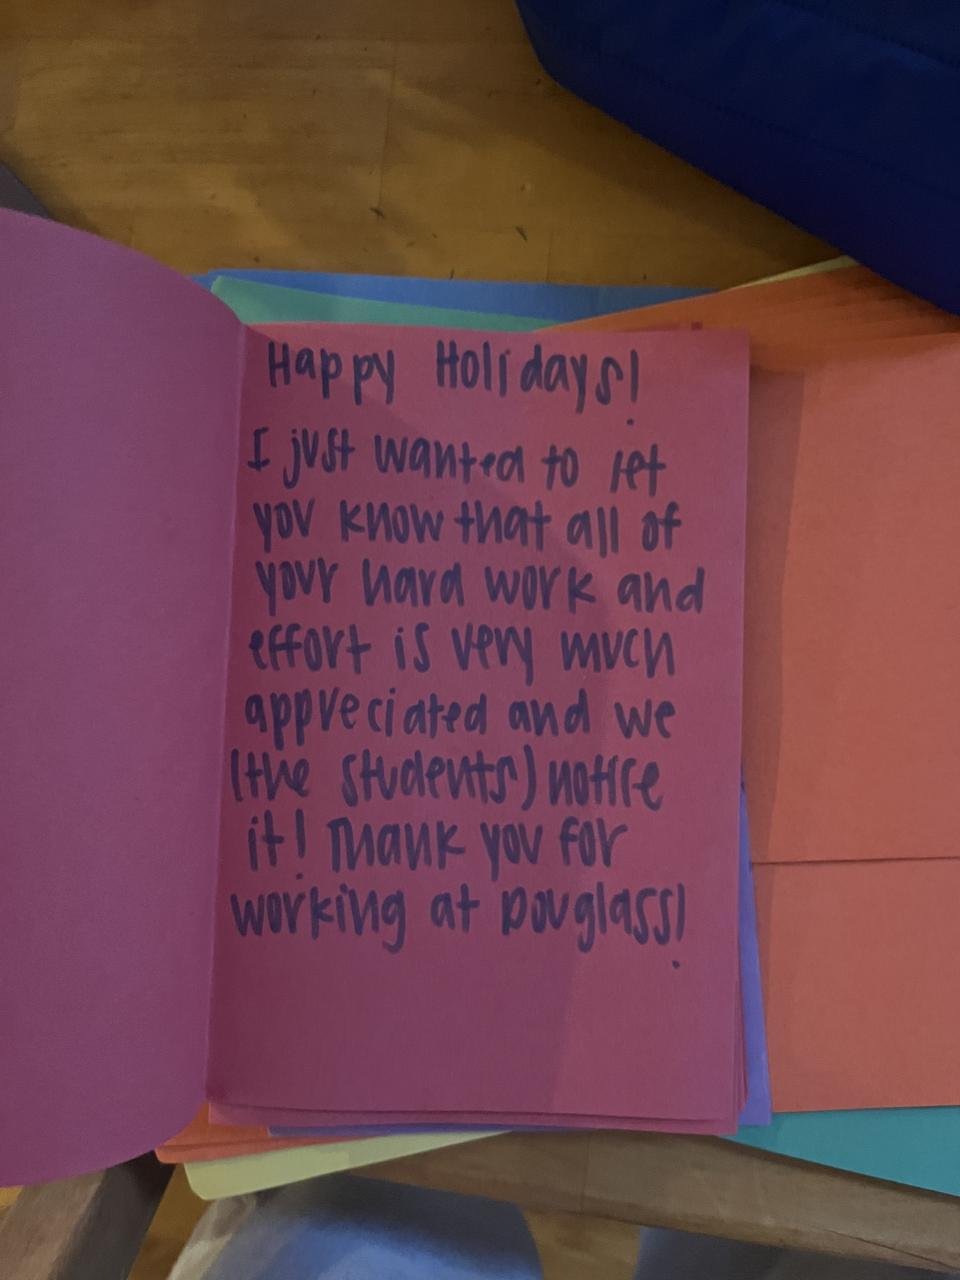 Happy Holidays!
I just wanted to let
you know that all of
your hard work and
effort is very much
appreciated and we
(the students) notice
it! Thank you for
working at Douglass!